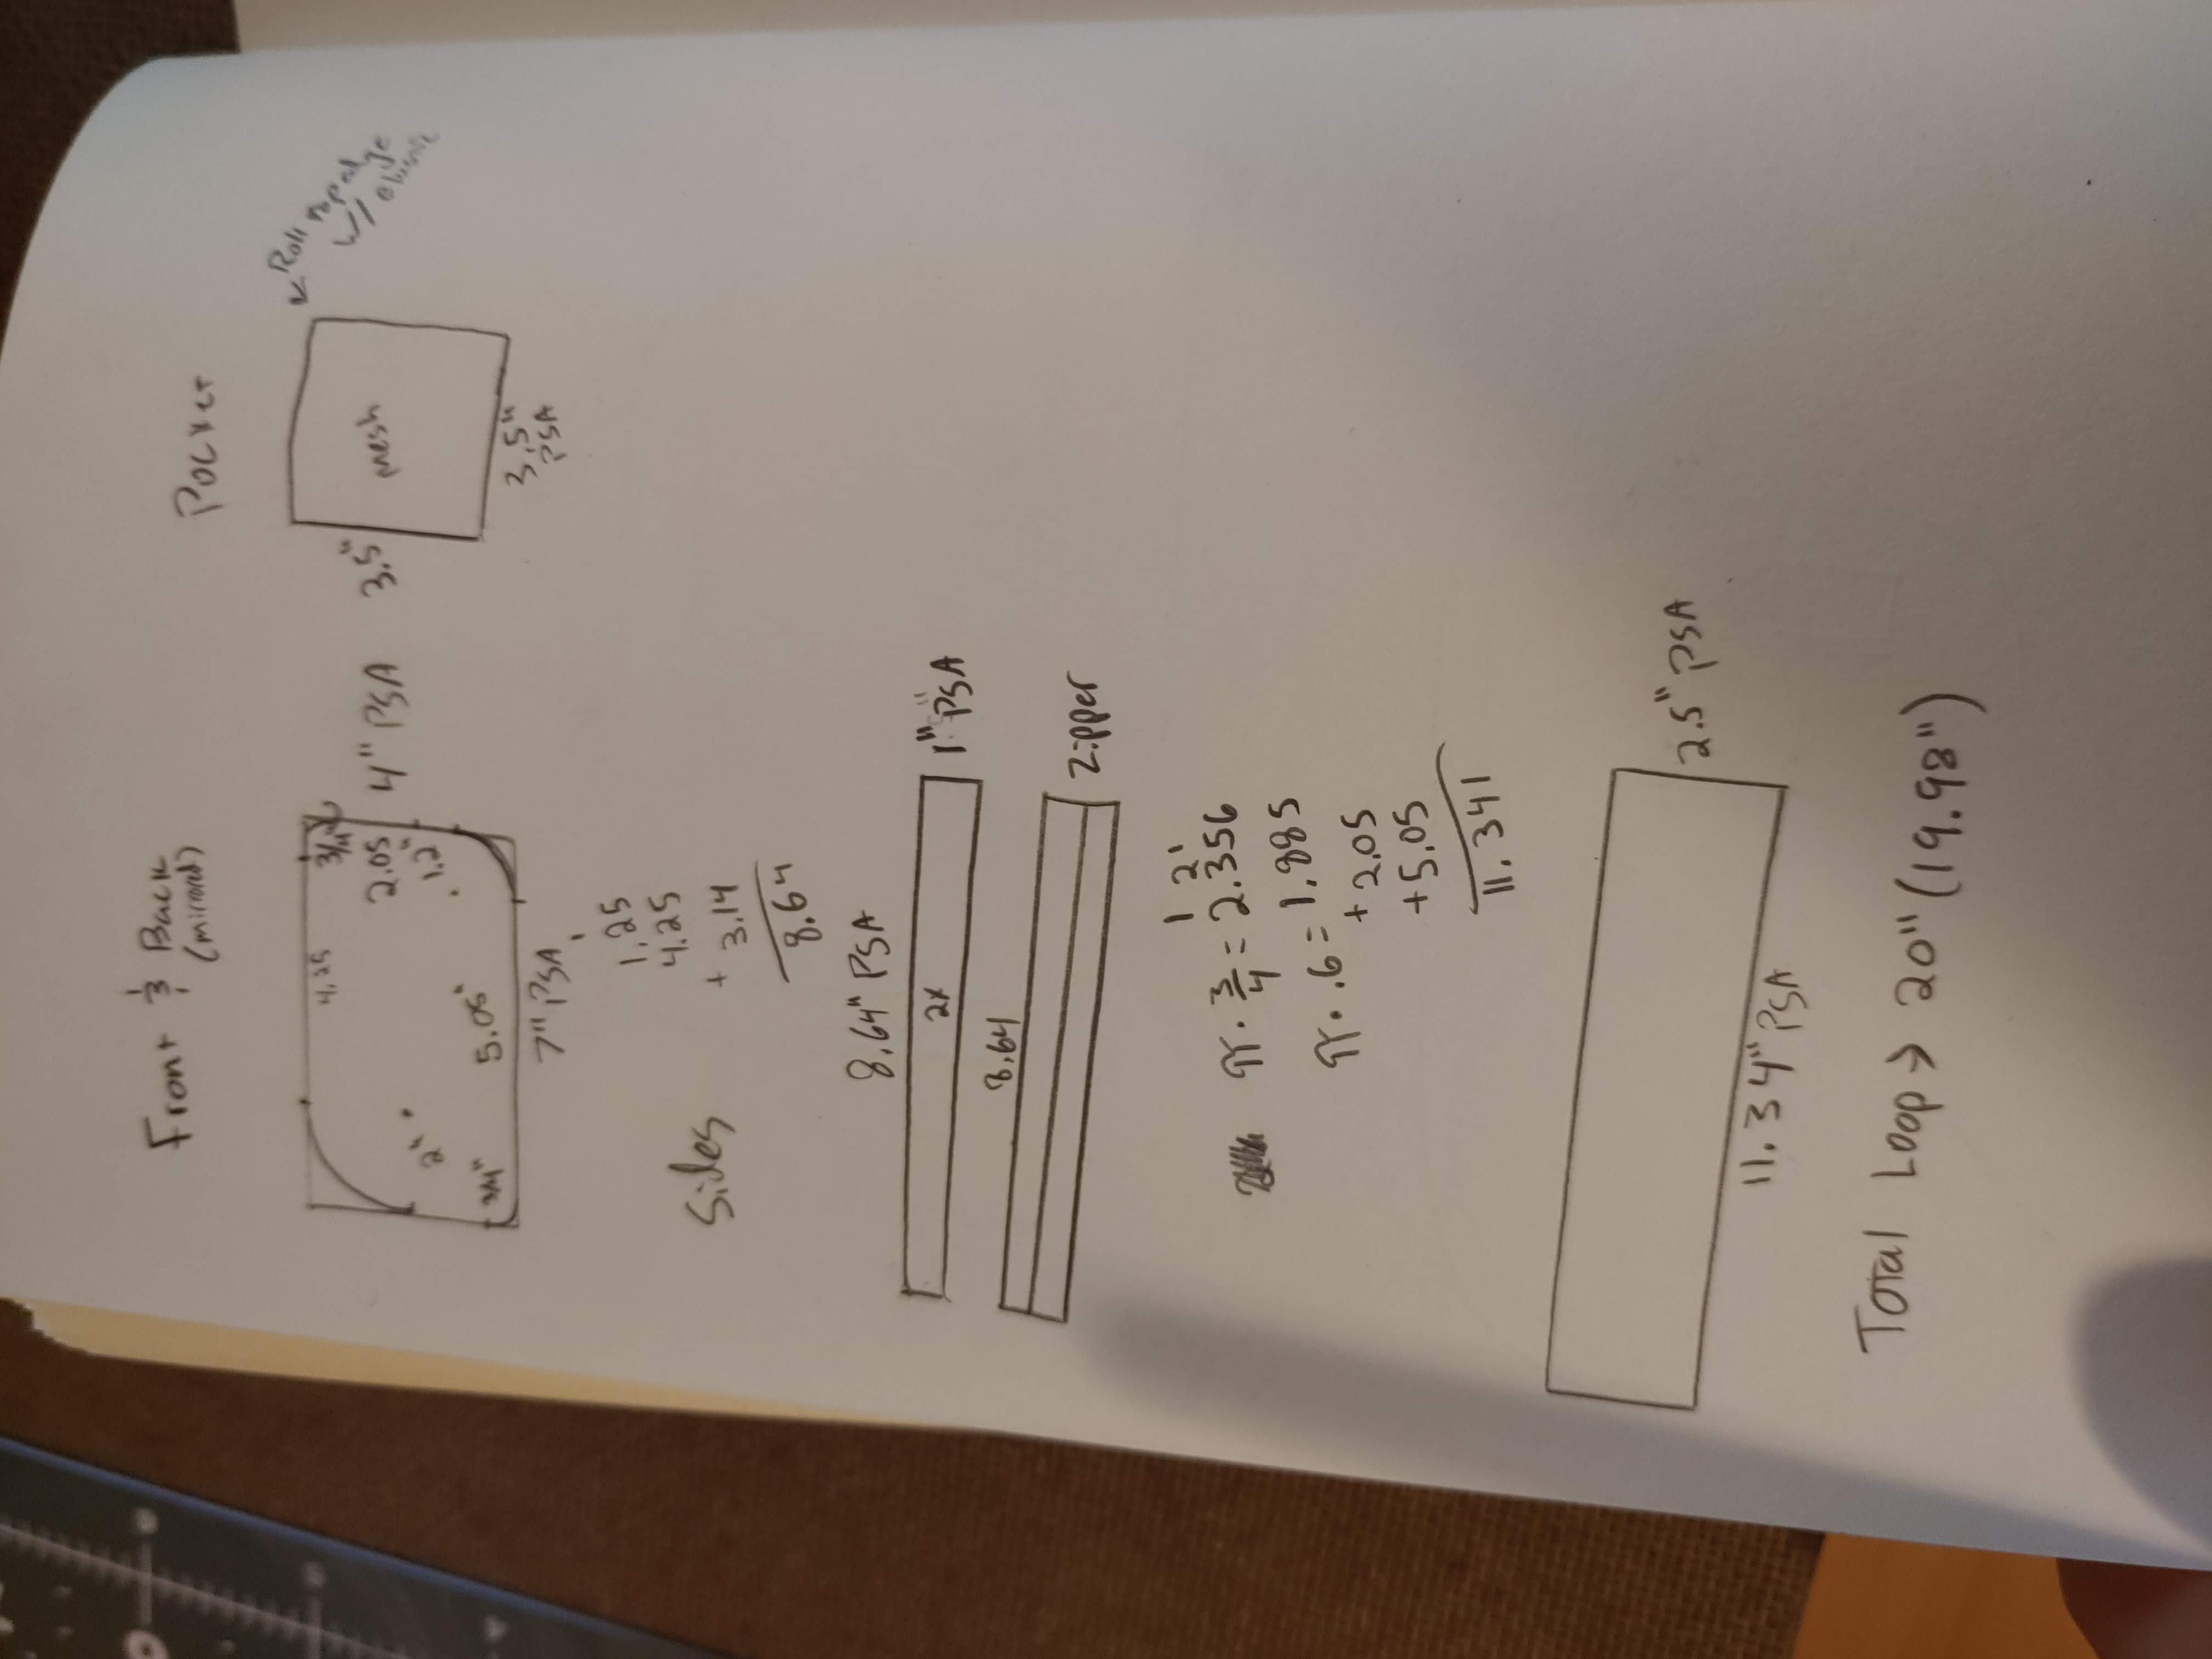 Front & Back
(mirrored)
Pocket
4.25
3/4"
2.05
1.2"
2"
3/4"
5.05"
4" PSA
7" PSA
3.5"
mesh
3.5"
PSA
Roll top edge
w/ elastic
Sides
1
1.25
4.25
+ 3.14
8.64
8.64" PSA
2x
1" PSA
8.64
Zipper
1 2 1
π · 3/4 = 2.356
π · .6 = 1.885
+ 2.05
+ 5.05
11.341
2.5" PSA
11.34" PSA
Total Loop → 20" (19.98")